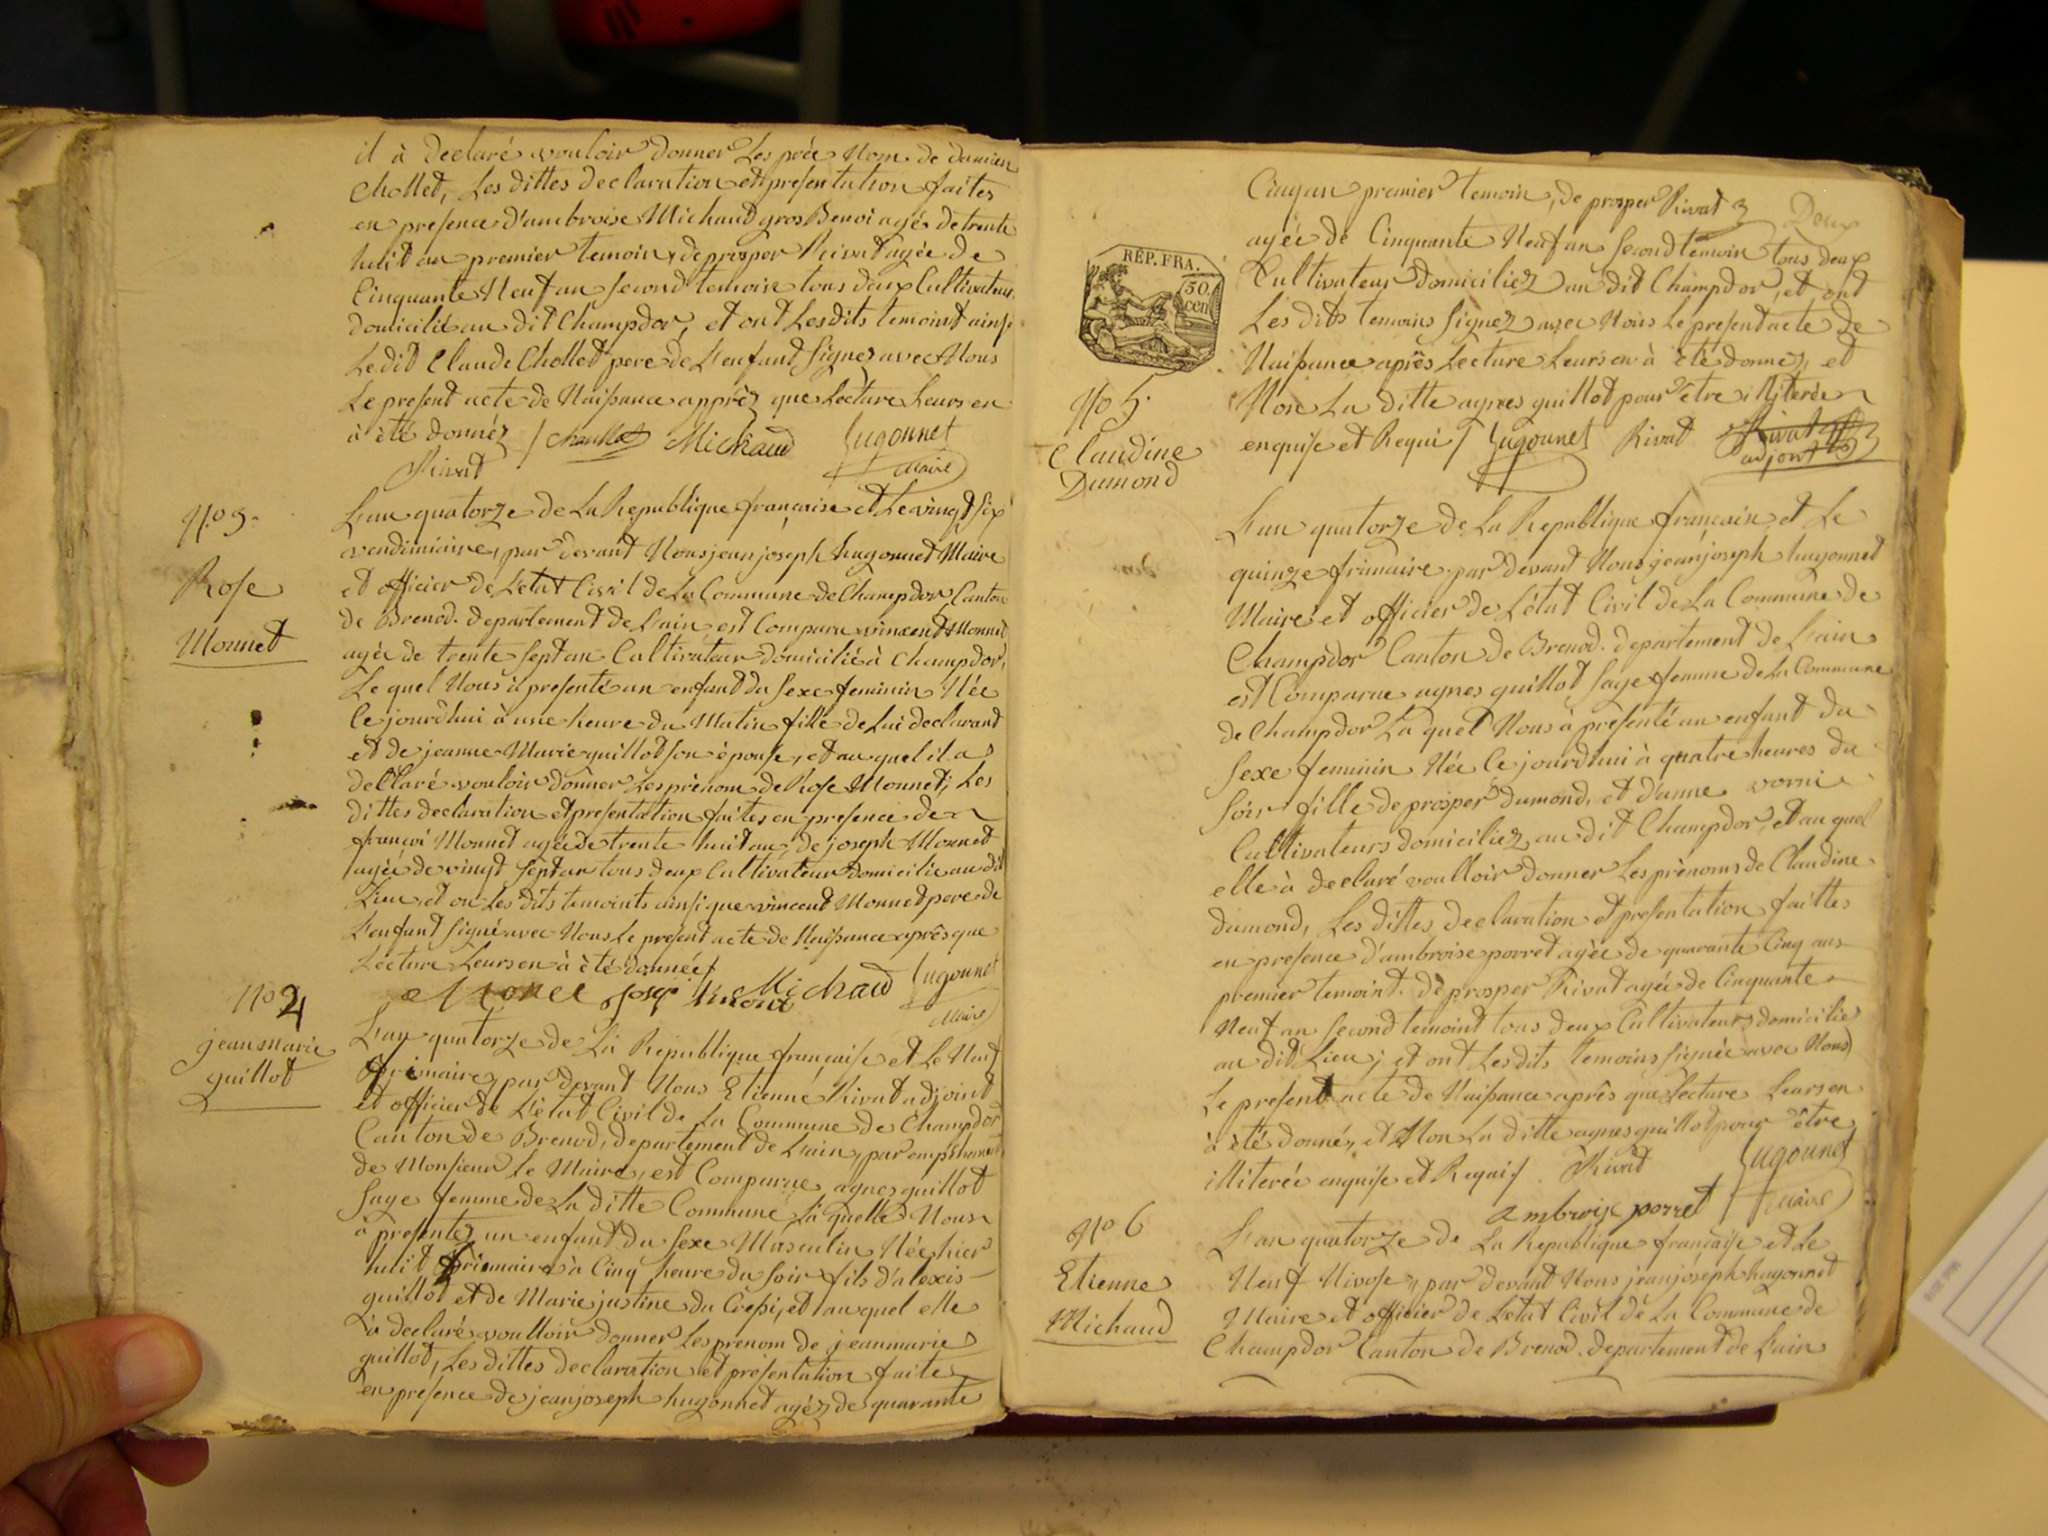 il à declaré vouloir donner Les pré Nom de damien
Chollet, Les dittes declaration et presentation faites
en presence d'ambroise Michaud gros Benoi agé de trente
huit an premier temoin, de prosper Rivat agée de
Cinquante Neuf an second temoin tous deux Cultivateur
domicilié au dit Champdor, et ont Lesdits temoint ainsi
Ledit Claude Chollet pere de L'enfant Signez avec Nous
Le present acte de Naissance apprèz que Lecture Leurs en
à été donnéz / Michaud hugonnet
Rivat Maire
No 3.
Rose
Monnet
L'an quatorze de La Republique francaise et Le vingt Six
vendimiaire, par devant Nous jean joseph hugonnet Maire
et officier de Letat Civil de La Commune de Champdor Canton
de Brenod. departement de L'ain est Comparu vincent Monnet
agée de trente Sept an Cultivateur domicilié à Champdor,
Le quel Nous à presenté un enfant du Sexe feminin Née
Ce jourdhui à une heure du Matin fille de Lui declarant
et de jeanne Marie guillot son épouse, et au quel il a
declaré vouloir donner Les prénom de Rose Monnet; Les
dittes declaration et presentation faites en presence de
françoi Monnet agée de trente huit an; de joseph Monnet
agée de vingt Sept an tous deux Cultivateur domicilie au dit
Lieu et on Les dits temoints ainsi que vincent Monnet pere de
L'enfant Signé avec Nous Le present acte de Naissance après que
Lecture Leurs en à été donnée /
Michaud hugonnet
Maire
No 4
jean marie
guillot
L'an quatorze de La Republique française et Le Neuf
frimaire, par devant Nous Etienne Rivat adjoint
et officier de L'état Civil de La Commune de Champdor
Canton de Brenod, departement de L'ain, par
de Monsieur Le Maire, est Comparue agnes guillot
Sage femme de La ditte Commune La quelle Nous
à presentéz un enfant du Sexe Masculin Née hier
huit frimaire à Cinq heure du Soir fils d'alexis
guillot et de Marie justine du Crépi, et au quel elle
à declaré voulloir donner Les prenom de jean marie
guillot, Les dittes declaration et présentation faite
en presence de jean joseph hugonnet agéz de quarante
Deux
Cinq an premier temoin, de prosper Rivat
agée de Cinquante Neuf an Second temoin tous deux
Cultivateur domiciliez au dit Champdor, et ont
Les dits temoins Signez avec Nous Le present acte de
Naissance après Lecture Leurs en à été donnez, et
Non La ditte agnes guillot pour être illiterée
enquise et Requi / hugonnet Rivat Rivat
adjoint
RÉP. FRA.
50
cen
No 5.
Claudine
Dumond
L'an quatorze de La Republique francaise, et Le
quinze frimaire, par devant Nous jean joseph hugonnet
Maire et officier de L'état Civil de La Commune de
Champdor Canton de Brenod. departement de L'ain
est Comparue agnes guillot Sage femme de La Commune
de Champdor La quel Nous à présenté un enfant du
Sexe feminin Née Ce jourdhui à quatre heures du
Soir fille de prosper dumond, et d'anne vorni
Cultivateurs domiciliez au dit Champdor, et au quel
elle à declaré voulloir donner Les prénoms de Claudine
dumond, Les dittes declaration et presentation faittes
en presence d'ambroise porret agée de quarante Cinq ans
premier temoint. de prosper Rivat agée de Cinquante
Neuf an Second temoint tous deux Cultivateurs domicilie
au dit Lieu; et ont Lesdits temoins Signée avec Nous
Le present acte de Naissance après que Lecture Leurs en
à été donnéz, et Non La ditte agnes guillot pour être
illiterée enquise et Requis / Rivat hugonnet
ambroise porret / maire
No 6
Etienne
Michaud
L'an quatorze de La Republique française et Le
Neuf Nivose, par devant Nous jean joseph hugonnet
Maire et officier de Letat Civil de La Commune de
Champdor Canton de Brenod. departement de L'ain